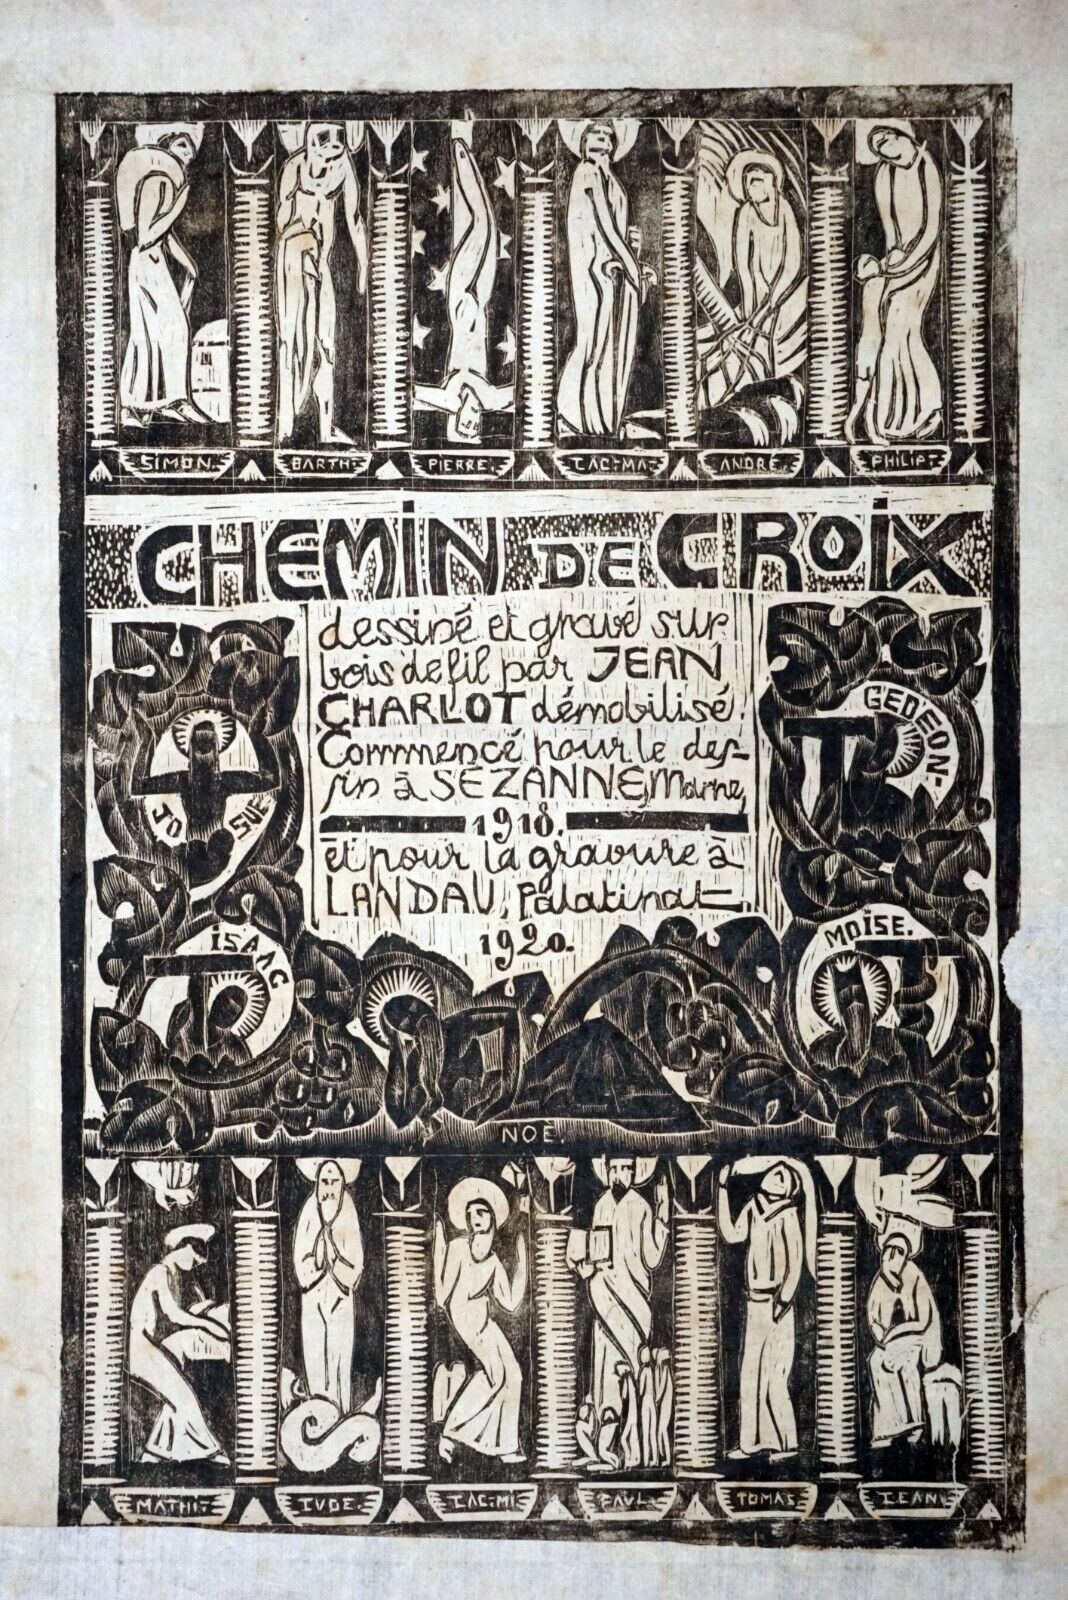 SIMON. BARTH: PIERRE. IAC-MA. ANDRÉ. PHILIP:
CHEMIN DE CROIX
dessiné et gravé sur
bois de fil par JEAN
CHARLOT démobilisé.
Commencé pour le des-
sin à SEZANNE, Marne,
1918.
et pour la gravure à
LANDAU, Palatinat
1920.
JOSUE
GEDEON-
ISAAC
MOISE.
NOÈ.
MATHI: IUDE. IAC-MI PAUL. TOMAS IEAN.